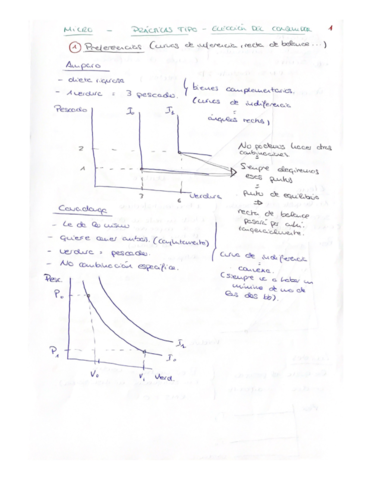 MICRO - PRÁCTICAS TIPO - ELECCIÓN DEL CONSUMIDOR 1
① Preferencias (curvas de indiferencia, recta de balance...)
Amparo
- dieta rigurosa
- 1 verdura = 3 pescado.
bienes complementarios.
(curvas de indiferencia
=
ángulos rectos)
Pescado
I₁
I₂
2
1
3
6
Verdura
No podemos hacer otras
combinaciones
Siempre elegiremos
esos puntos
=
punto de equilibrio
⇒
recta de balance
pasará por ahí
tangencialmente.
Covadonga
- Le da lo mismo
- quiere tener ambos. (conjuntamente)
- verdura = pescado
- No combinación específica.
curva de indiferencia
=
convexa.
(siempre va a haber un
mínimo de uno de
los dos bb).
Pesc.
P₀
P₁
I₂
I₁
V₀
V₁
Verd.